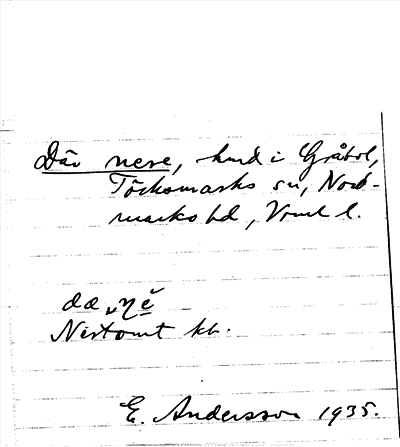 Där nere, hmd i Gråbol,
Töcksmarks sn, Nord-
marks hd, Vrml l.
Nistomt kb.
E. Andersson 1935.